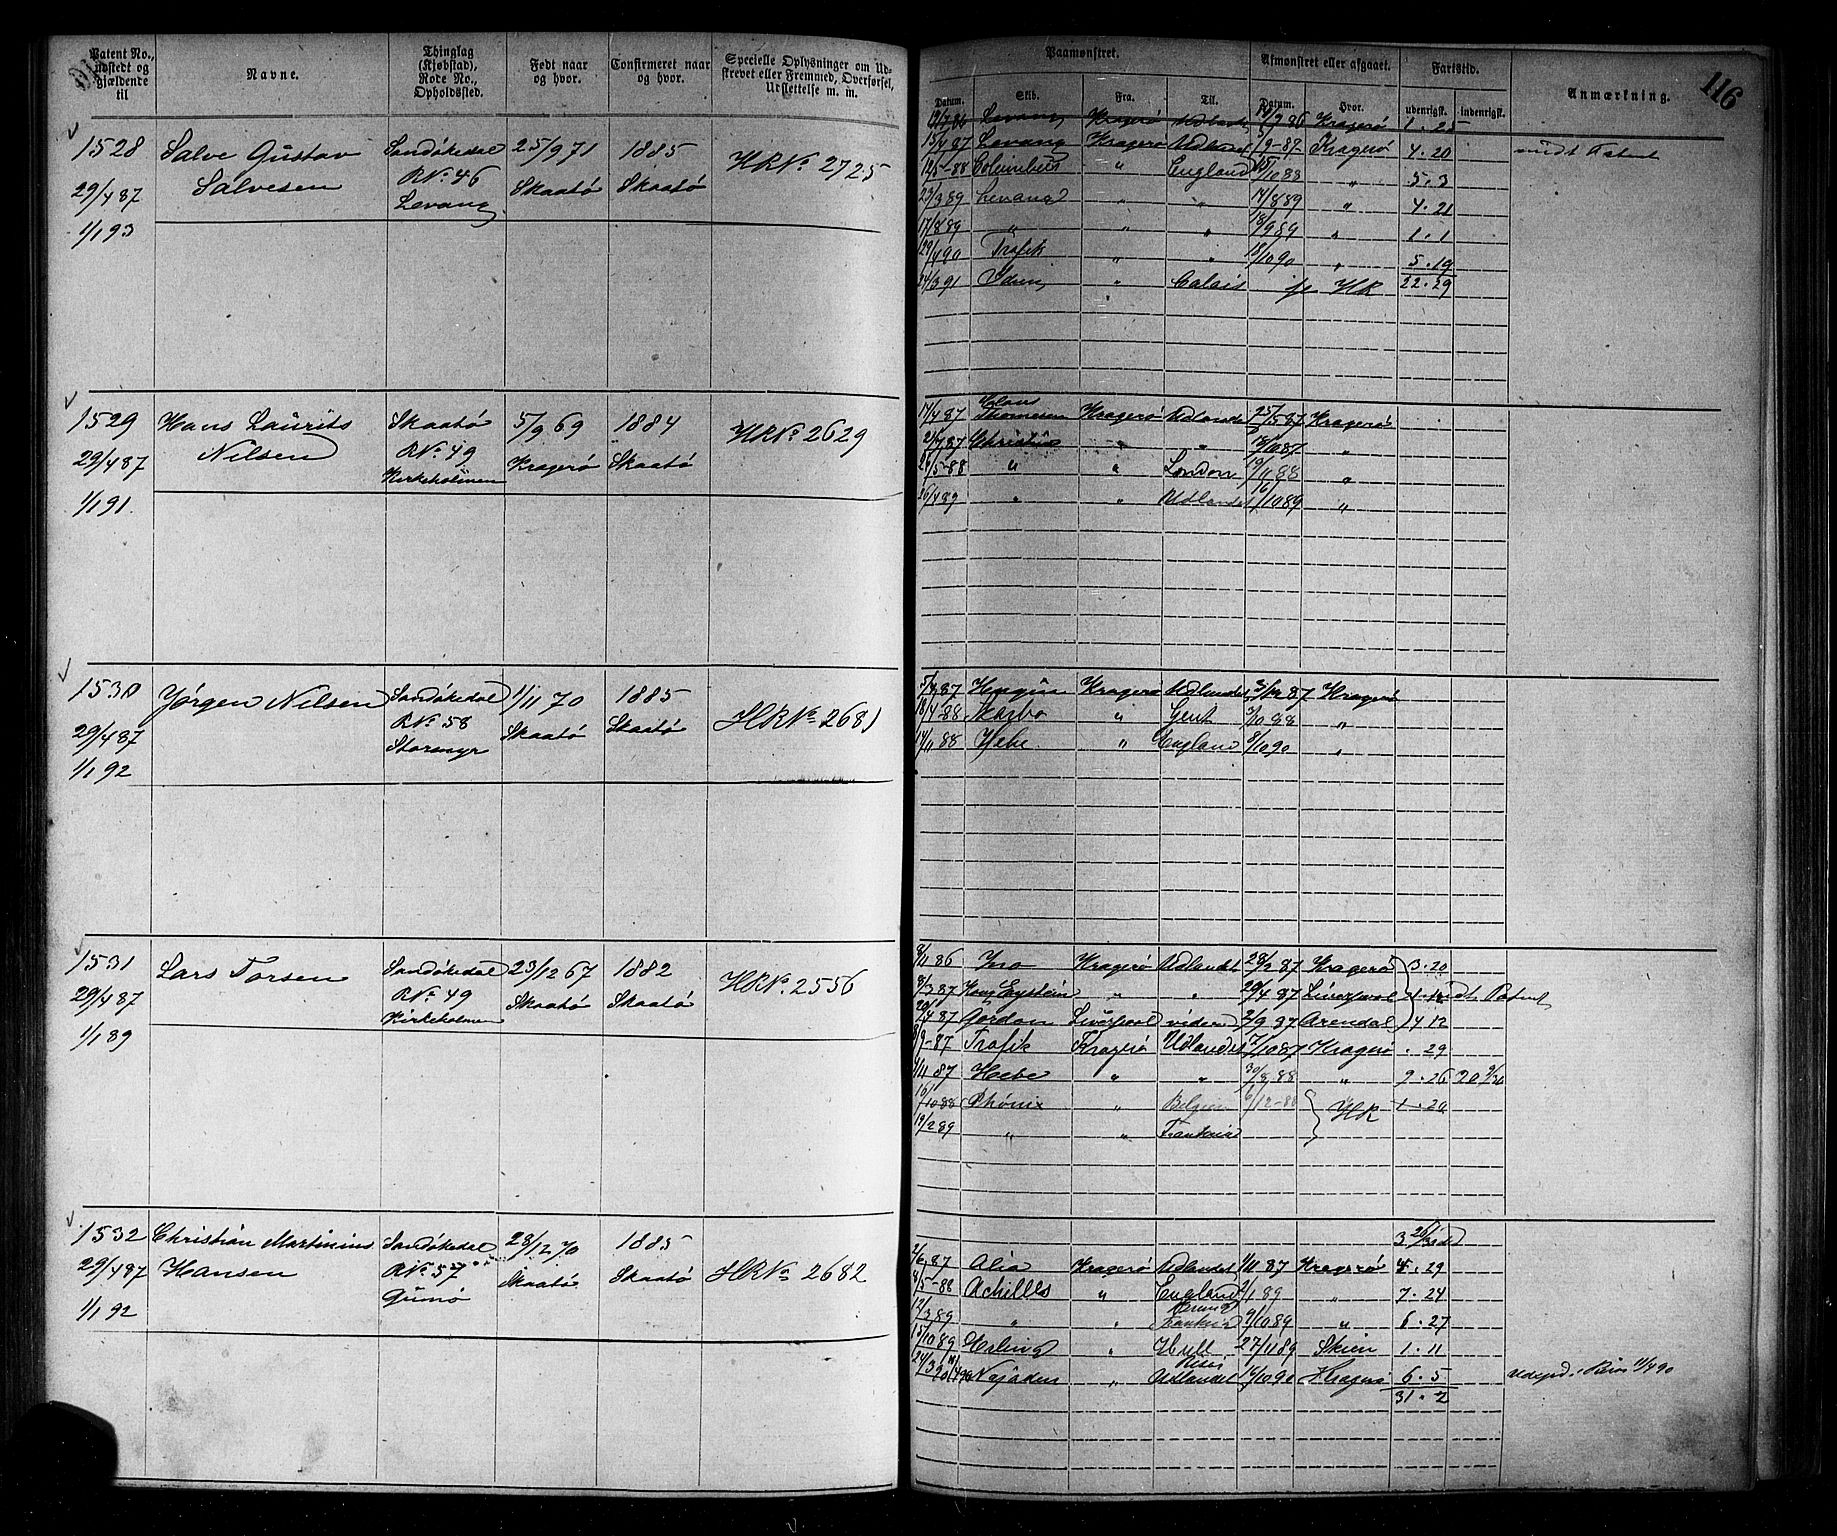 Patent No., udstedt og gjældende til
Navne.
Thinglag (Kjøbstad), Rode No., Opholdssted.
Født naar og hvor.
Confirmeret naar og hvor.
Specielle Oplysninger om Udskrevet eller Fremmed, Overførsel, Udslettelse m. m.
Paamønstret.
Datum. Skib. Fra. Til.
Afmønstret eller afgaaet.
Datum. Hvor.
Fartstid.
udenrigsk. indenrigsk.
Anmærkning.
116
1528 Salve Gustav Sandøkedal 25/9 71 1885 HRNo 2725
29/4 87 Salvesen RNo 46 Skaatø Skaatø
1/1 93 Levang
12/7 86 Levang Kragerø Udlandet 86 Kragerø 1. 25
15/4 87 Levang Kragerø Udlandet 5/9-87 Kragerø 4. 20 Patent
12/5-88 Columbus " England 10 88 " 5. 3
23/3 89 Levang " " 17/8 89 " 4. 21
17/8 89 " " " 18/9 89 " 1. 1
29/4 90 Trafik " " 18/10 90 " 5. 19
24/3 91 " Calais HR 22. 29
1529 Hans Laurits Skaatø 5/9 69 1884 HRNo 2629
29/4 87 Nilsen RNo 49 Kragerø Skaatø
1/1 91. Kirkeholmen
17/4 87 Thomesen Kragerø Udlandet 25/5-87 Kragerø
2/7 87 Christine " " 13/10 87 "
5-88 " " London 19/11 88 "
26/4 89 " " Udlandet 16/10 89 "
1530 Jørgen Nilsen Sandøkedal 1/11 70 1885 HRNo 2681
29/4 87 RNo 58 Skaatø Skaatø
1/1 92 Storemyr
87 Kragerø Udlandet 3/12 87 Kragerø
18/4-88 Skarbo " Gent 3/10 88 "
14/11 88 Hebe " England 8/10 90 "
1531 Lars Torsen Sandøkedal 23/12 67 1882 HRNo. 2556
29/4 87 RNo 49 Skaatø Skaatø
1/1 89 Kirkeholmen
9/11 86 Kragerø Udlandet 28/2 87 Kragerø 3. 20
8/3 87 Kong Eystein " " 29/4 87 Liverpool Patent
4 87 Gordon Liverpool videre 2/9 87 Arendal 4 12
8/9-87 Trafik Kragerø Udlandet 7/10 87 Kragerø . 29
1/11 87 Hebe " " 30/8 88 " 9. 26
16/10 88 Phønix " Belgien 6/12-88 " HR 1. 20
19/2 89 " " Frankrig
1532 Christian Martinius Sandøkedal 28/12 70 1885 HRNo 2682
29/4 87 Hansen RNo 57 Skaatø Skaatø
1/1 92 Gumø
2/6 87 Alia Kragerø Udlandet 1/11 87 Kragerø 4. 29
4/5-88 Achilles " England 2/1 89 " 7. 24
12/3 89 " " Frankrig 9/10 89 " 6. 27
15/10 89 " Hull 27/11 89 Skien 1. 11
24/3 90 Najaden " Udlandet 14/10 90 Kragerø 6. 5
31. 2